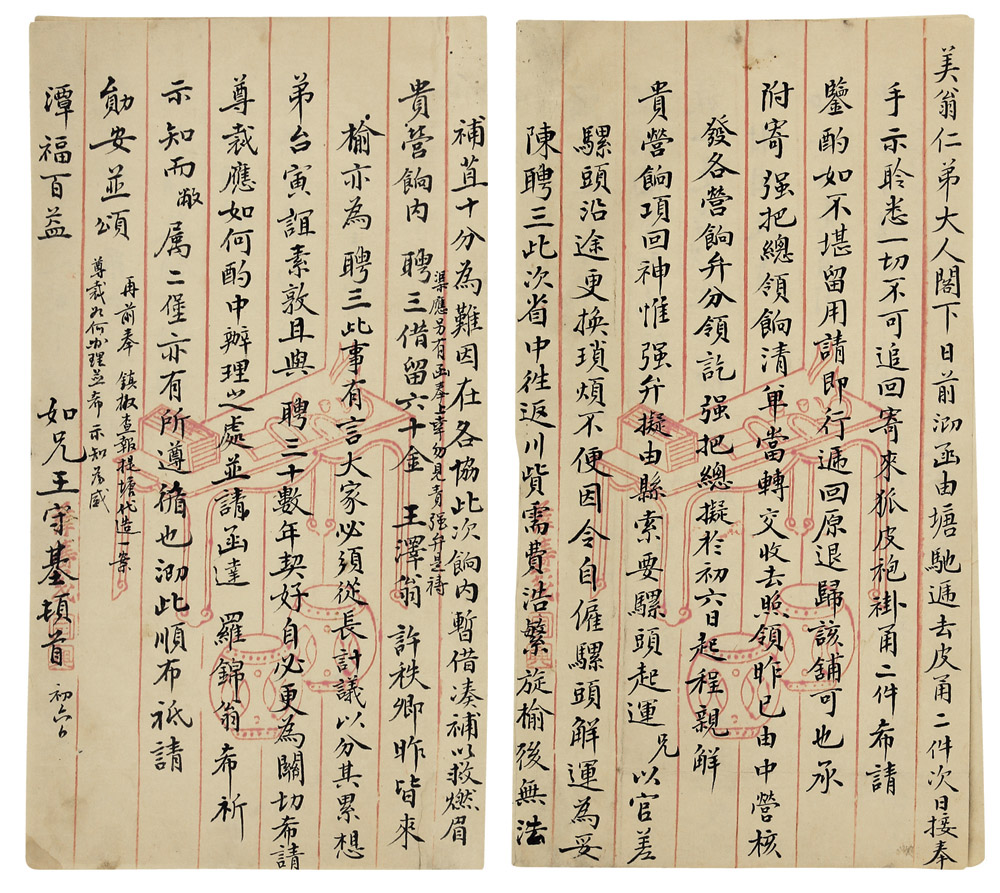 美翁仁弟大人閣下日前泐函由塘馳遞去皮甬二件次日接奉
手示聆悉一切不可追回寄來狐皮袍褂甬二件希請
鑒酌如不堪留用請即行遞回原退歸該舖可也承
附寄强把總領餉清單當轉交收去照領昨已由中營核
發各營餉弁分領訖强把總擬於初六日起程親解
貴營餉項回神惟强弁擬由縣索要騾頭起運兄以官差
騾頭沿途更換瑣煩不便因令自僱騾頭解運為妥
陳聘三此次省中徃返川貲需費浩繁旋榆後無法
補苴十分為難因在各協此次餉內暫借凑補以救燃眉
渠應另有函奉上幸勿見責强弁是禱
貴營餉內聘三借留六十金王澤翁許秩卿昨皆來
榆亦為聘三此事有言大家必須從長計議以分其累想
弟台寅誼素敦且與聘三十數年契好自必更為關切希請
尊裁應如何酌中辦理之處並請函達羅錦翁希祈
示知而敝属二堡亦有所遵循也泐此順布祗請
勛安並頌
再前奉鎮檄查報提塘代造一案
尊裁如何辦理並希示知為感
潭福百益
如兄王守基頓首初六日